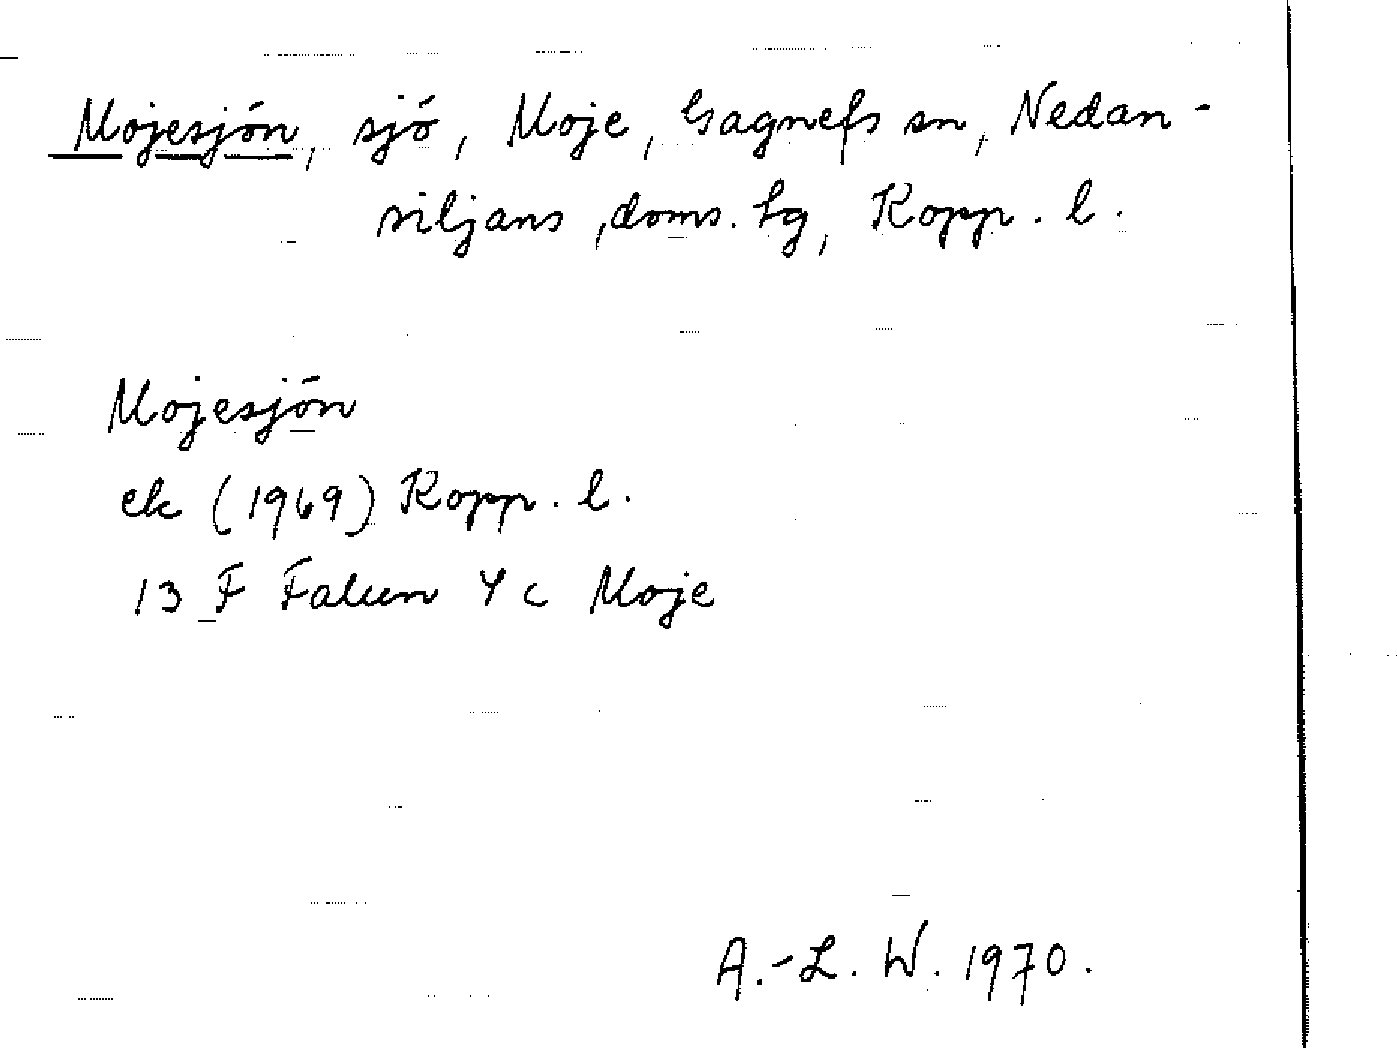 Mojesjön, sjö, Moje, Gagnefs sn, Nedan-
siljans doms. hg, Kopp. l.
Mojesjön
ek (1969) Kopp. l.
13 F Falun 4 c Moje
A.-L. W. 1970.